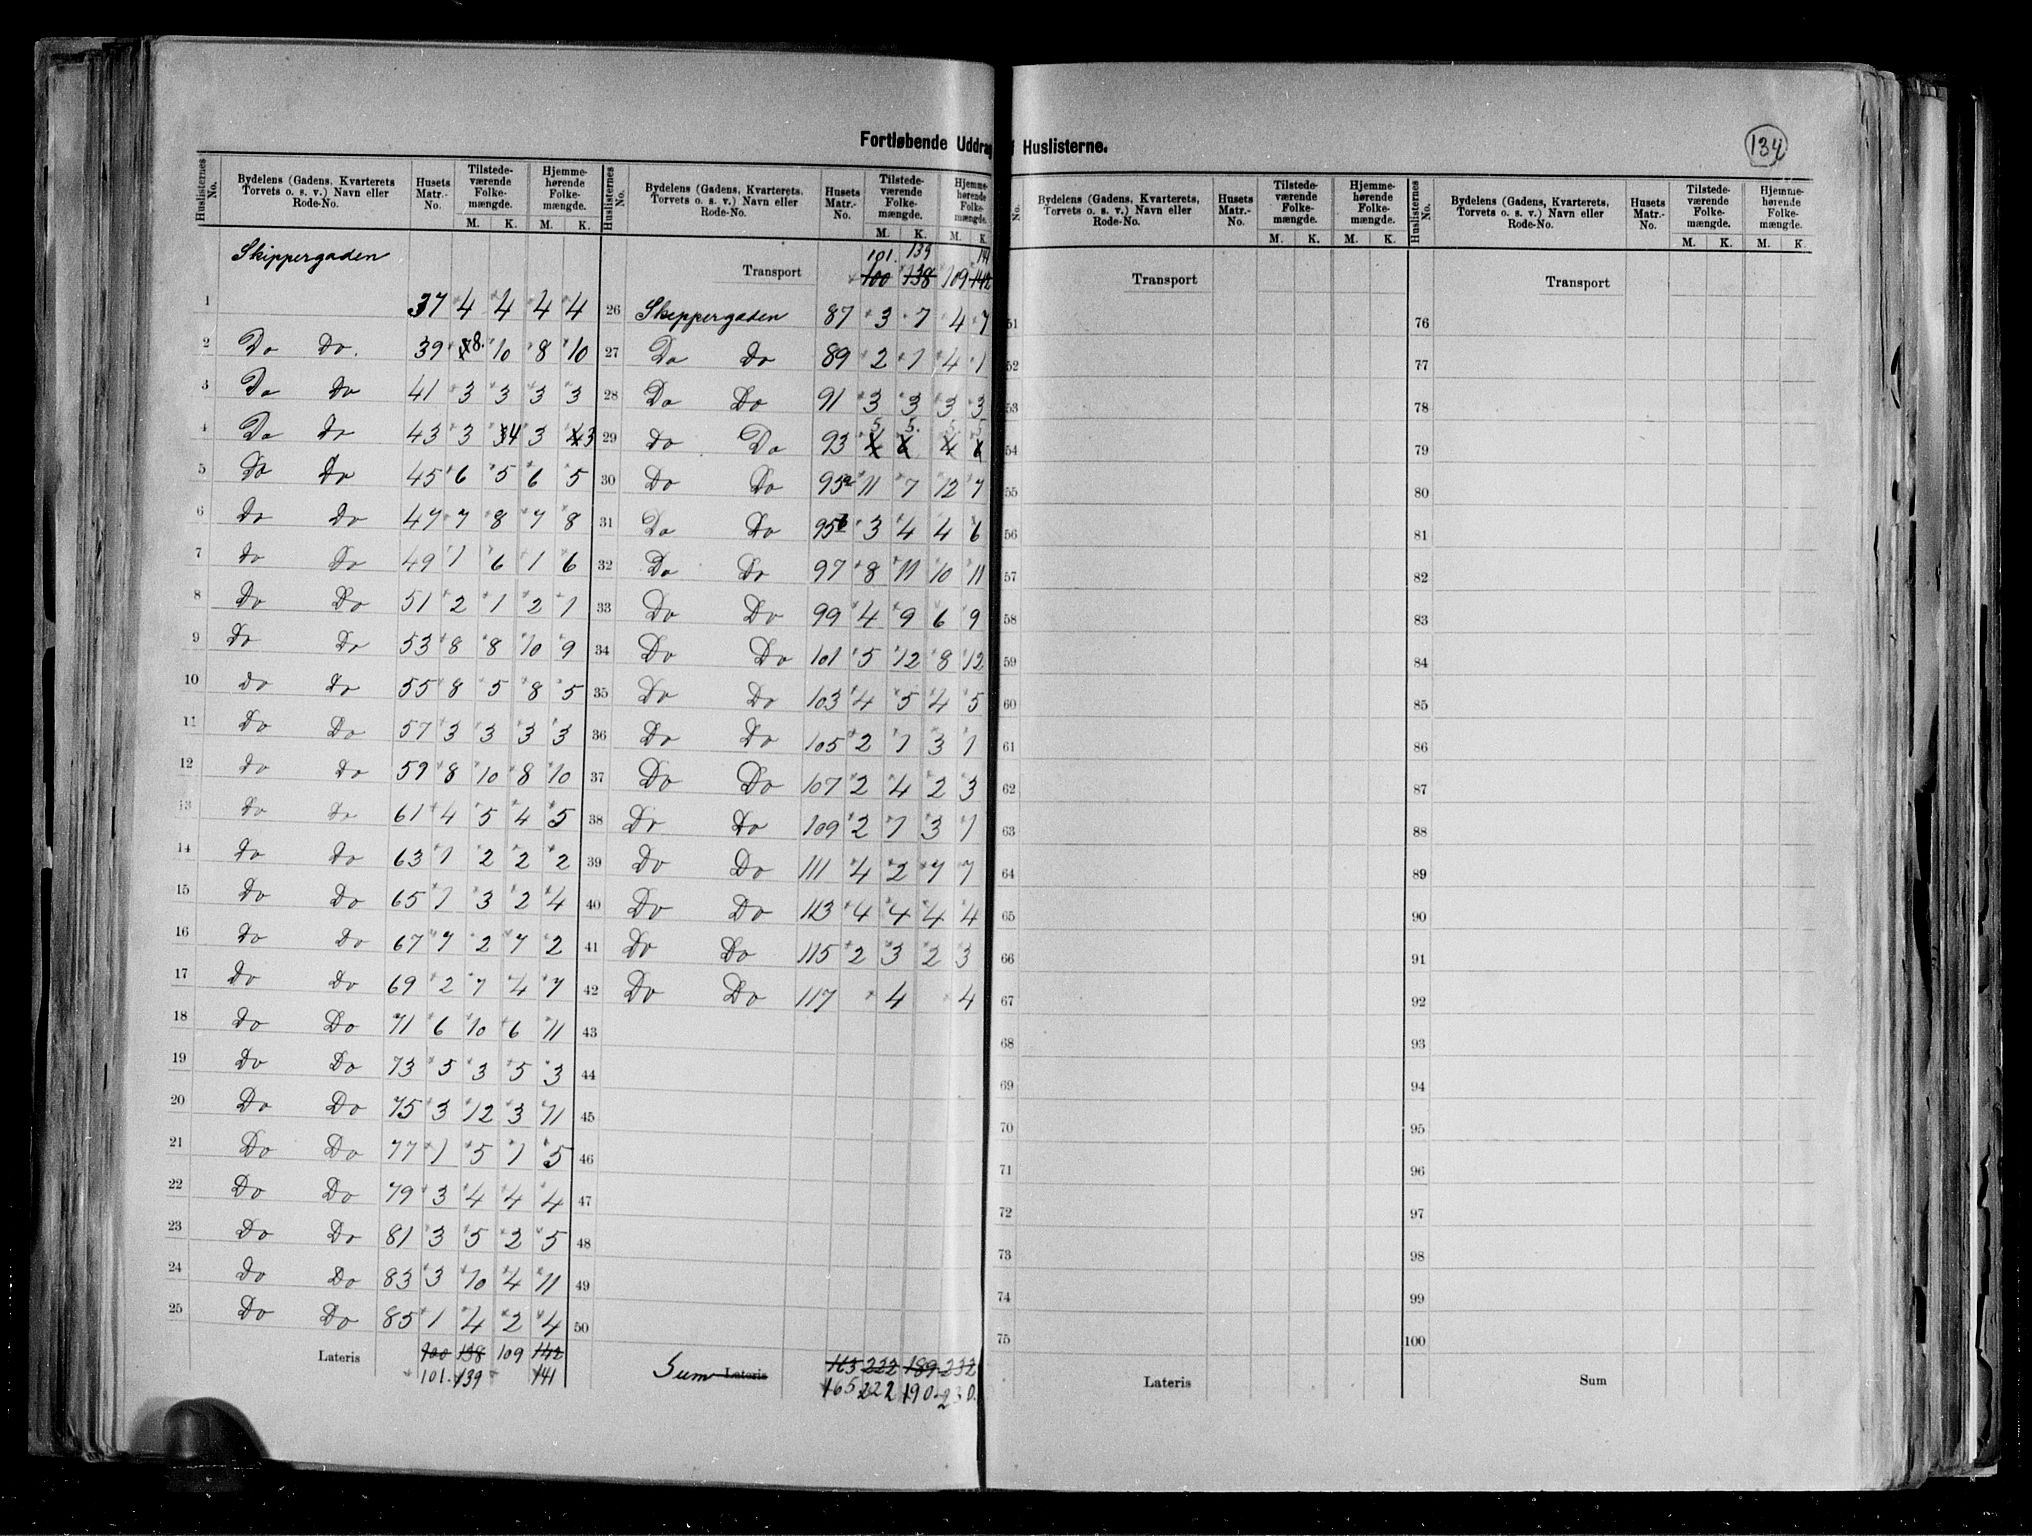 134
Fortløbende Uddrag f Huslisterne.
Huslisternes No. Bydelens (Gadens, Kvarterets Torvets o. s. v.) Navn eller Rode-No. Husets Matr.-No. Tilstede-værende Folke-mængde. M. K. Hjemme-hørende Folke-mængde. M. K.
Skippergaden
1 37 4 4 4 4
2 Do Do. 39 8. 10 8 10
3 Do Do 41 3 3 3 3
4 Do Do 43 3 4 3 3
5 Do Do 45 6 5 6 5
6 Do Do 47 7 8 7 8
7 Do Do 49 1 6 1 6
8 Do Do 51 2 1 2 1
9 Do Do 53 8 8 10 9
10 Do Do 55 8 5 8 5
11 Do Do 57 3 3 3 3
12 Do Do 59 8 10 8 10
13 Do Do 61 4 5 4 5
14 Do Do 63 1 2 2 2
15 Do Do 65 1 3 2 4
16 Do Do 67 7 2 7 2
17 Do Do 69 2 7 4 7
18 Do Do 71 6 10 6 11
19 Do Do 73 5 3 5 3
20 Do Do 75 3 12 3 11
21 Do Do 77 1 5 1 5
22 Do Do 79 3 4 4 4
23 Do Do 81 3 5 2 5
24 Do Do 83 3 10 4 11
25 Do Do 85 1 4 2 4
Lateris 100 138 109 142
101. 139 141
Huslisternes No. Bydelens (Gadens, Kvarterets, Torvets o. s. v.) Navn eller Rode-No. Husets Matr.-No. Tilstede-værende Folke-mængde. M. K. Hjemme-hørende Folke-mængde. M. K.
101. 139 141
Transport 100 138 109 142
26 Skippergaden 87 3 7 4 7
27 Do Do 89 2 1 4 1
28 Do Do 91 3 3 3 3
29 Do Do 93 5 5. 5 5
30 Do Do 95a 11 7 12 7
31 Do Do 95b 3 4 4 6
32 Do Do 97 8 11 10 11
33 Do Do 99 4 9 6 9
34 Do Do 101 5 12 8 12
35 Do Do 103 4 5 4 5
36 Do Do 105 2 1 3 1
37 Do Do 107 2 4 2 3
38 Do Do 109 2 1 3 1
39 Do Do 111 4 2 7 7
40 Do Do 113 4 4 4 4
41 Do Do 115 2 3 2 3
42 Do Do 117 4 4
43
44
45
46
47
48
49
50
Sum Lateris 163 222 189 232
165 222 190. 230.
No. Bydelens (Gadens, Kvarterets, Torvets o. s. v.) Navn eller Rode-No. Husets Matr.-No. Tilstede-værende Folke-mængde. M. K. Hjemme-hørende Folke-mængde. M. K.
Transport
51
52
53
54
55
56
57
58
59
60
61
62
63
64
65
66
67
68
69
70
71
72
73
74
75
Lateris
Huslisternes No. Bydelens (Gadens, Kvarterets, Torvets o. s. v.) Navn eller Rode-No. Husets Matr.-No. Tilstede-værende Folke-mængde. M. K. Hjemme-hørende Folke-mængde. M. K.
Transport
76
77
78
79
80
81
82
83
84
85
86
87
88
89
90
91
92
93
94
95
96
97
98
99
100
Sum